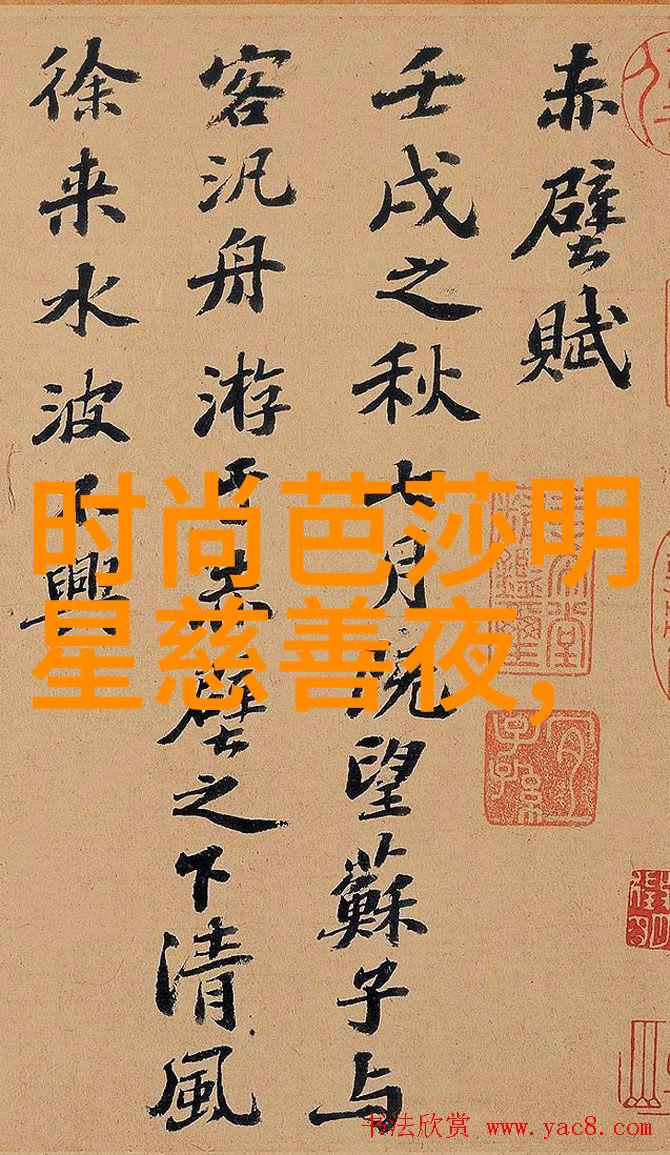 赤壁賦
壬戌之秋七月既望蘇子与
客汎舟游于赤壁之下清風
徐来水波不興
时尚芭莎明
星慈善夜,
书法欣赏 www.yac8.com